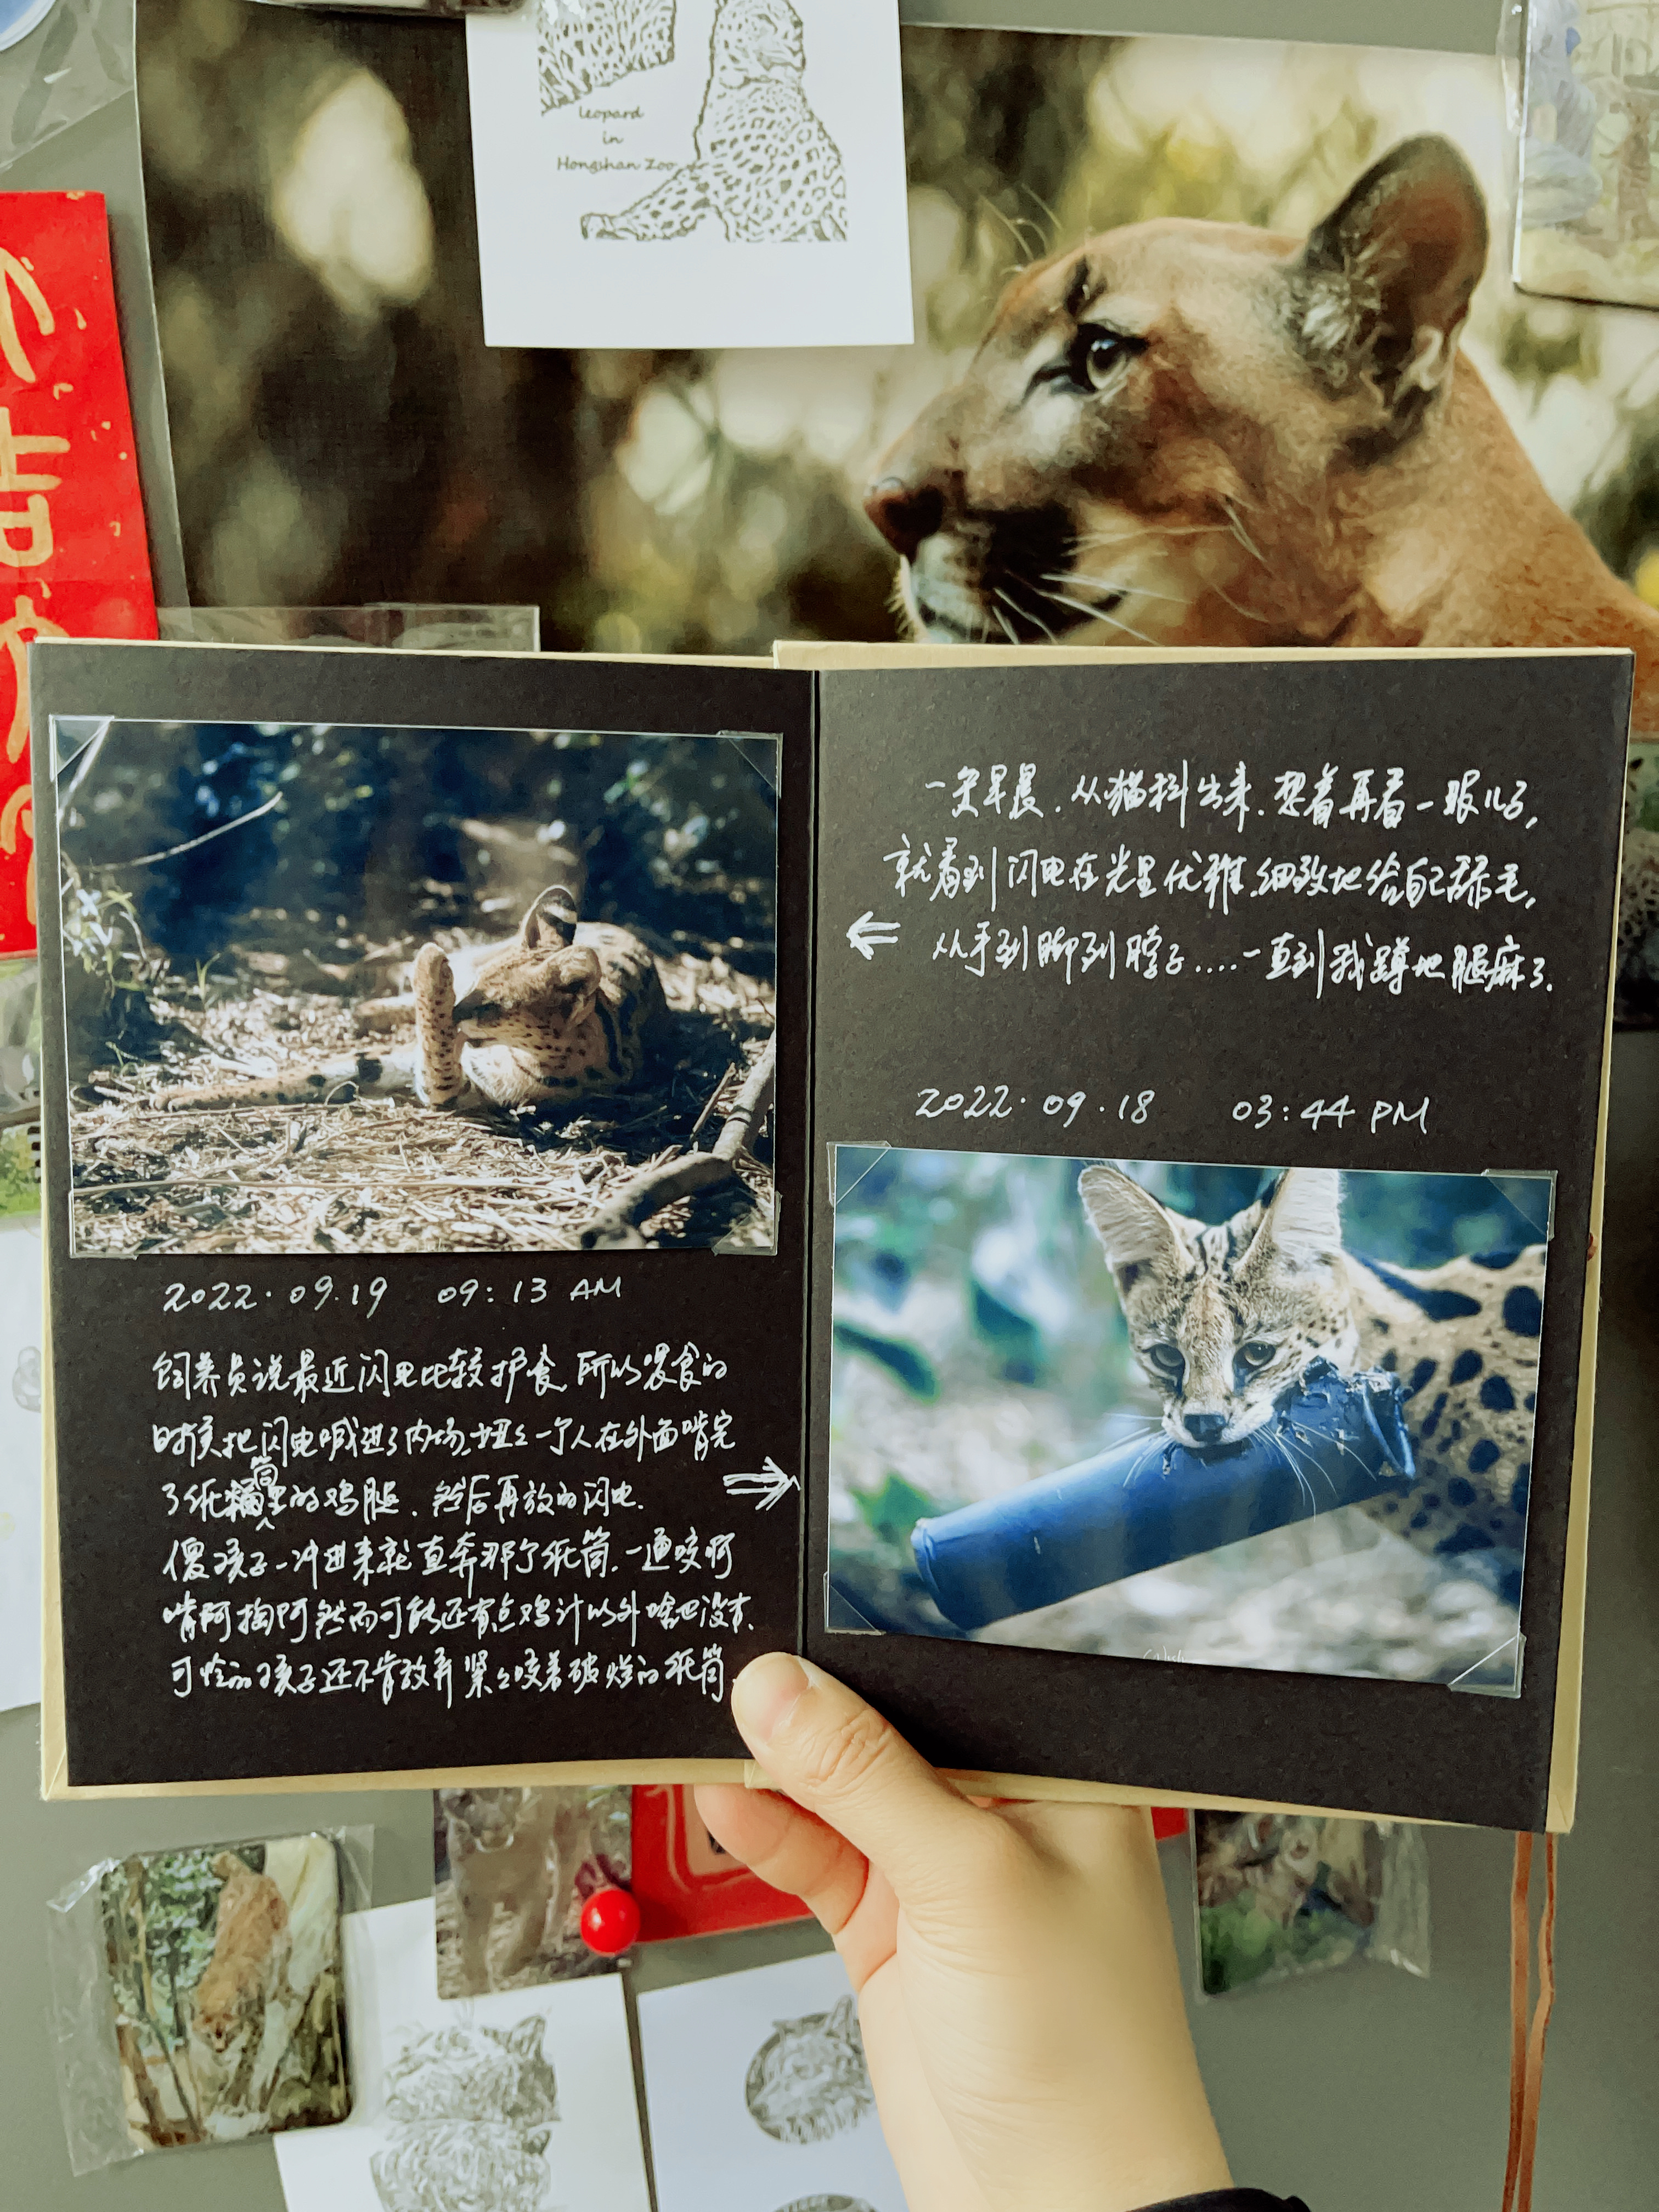 leopard
in
Hongshan Zoo
大吉
2022.09.19 09:13 AM
饲养员说最近闪电比较护食,所以喂食的
时候把闪电喊进了内场,妞妞一个人在外面啃完
了纸筒里的鸡腿,然后再放的闪电.
傻孩子一冲进来就直奔那个纸筒,一通咬啊
啃啊掏啊然而可能还有点鸡汁以外啥也没有.
可怜的孩子还不肯放弃紧紧咬着破烂的纸筒.
一祭早晨.从猫科出来.想着再看一眼儿子,
就看到闪电在光里优雅、细致地给自己舔毛,
从手到脚到脖子....一直到我蹲地腿麻了.
2022.09.18 03:44 PM